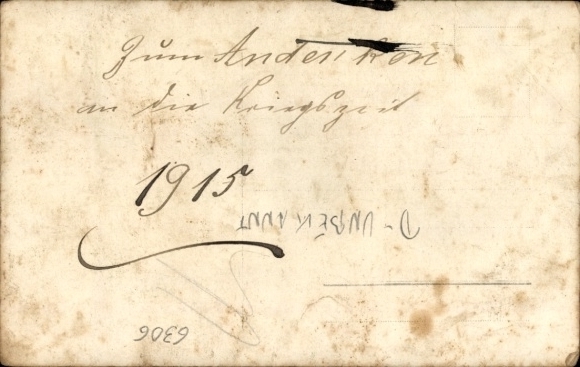 Zum Andenken
an die Kriegszeit
1915
D-UNBEKANNT
6306